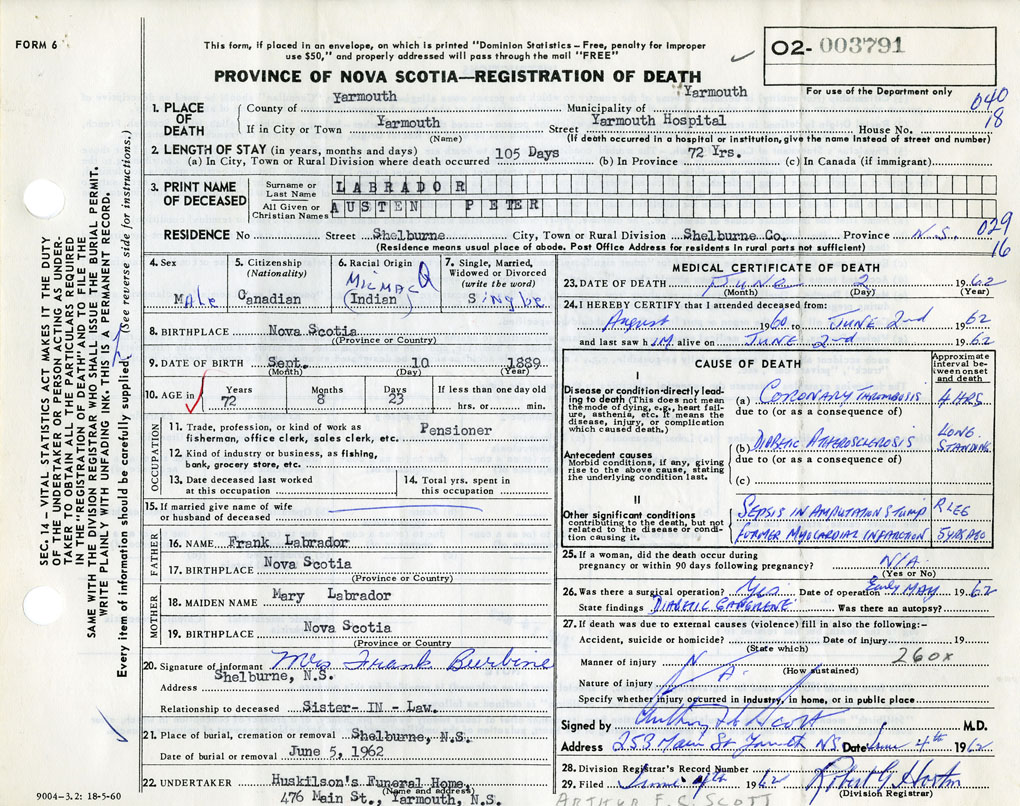 FORM 6
This form, if placed in an envelope, on which is printed "Dominion Statistics – Free, penalty for improper
use $50," and properly addressed will pass through the mail "FREE"
O2- 003791
For use of the Department only
PROVINCE OF NOVA SCOTIA—REGISTRATION OF DEATH
1. PLACE OF DEATH
County of Yarmouth Municipality of Yarmouth
040
18
If in City or Town Yarmouth Street Yarmouth Hospital House No.
(Name) (If death occurred in a hospital or institution, give the name instead of street and number)
2. LENGTH OF STAY (in years, months and days)
(a) In City, Town or Rural Division where death occurred 105 Days (b) In Province 72 Yrs. (c) In Canada (if immigrant)
3. PRINT NAME OF DECEASED
Surname or Last Name LABRADOR
All Given or Christian Names AUSTEN PETER
RESIDENCE No Street Shelburne City, Town or Rural Division Shelburne Co. Province N.S.
029
16
(Residence means usual place of abode. Post Office Address for residents in rural parts not sufficient)
4. Sex Male
5. Citizenship (Nationality) Canadian
6. Racial Origin MICMAC (Indian)
7. Single, Married, Widowed or Divorced (write the word) Single
8. BIRTHPLACE Nova Scotia
(Province or Country)
9. DATE OF BIRTH Sept. 10 1889
(Month) (Day) (Year)
10. AGE in Years 72 Months 8 Days 23 If less than one day old
hrs. or min.
OCCUPATION
11. Trade, profession, or kind of work as fisherman, office clerk, sales clerk, etc. Pensioner
12. Kind of industry or business, as fishing, bank, grocery store, etc.
13. Date deceased last worked at this occupation
14. Total yrs. spent in this occupation
15. If married give name of wife or husband of deceased
FATHER
16. NAME Frank Labrador
17. BIRTHPLACE Nova Scotia
(Province or Country)
MOTHER
18. MAIDEN NAME Mary Labrador
19. BIRTHPLACE Nova Scotia
(Province or Country
20. Signature of informant Mrs Frank Burbine
Address Shelburne, N.S.
Relationship to deceased Sister- IN - Law.
21. Place of burial, cremation or removal Shelburne, N.S.
Date of burial or removal June 5, 1962
22. UNDERTAKER Huskilson's Funeral Home,
(Name and address)
476 Main St., Yarmouth, N.S.
MEDICAL CERTIFICATE OF DEATH
23. DATE OF DEATH JUNE 2 1962
(Month) (Day) (Year)
24. I HEREBY CERTIFY that I attended deceased from:
August 1960 to JUNE 2nd 1962
and last saw him alive on JUNE 2nd 1962
CAUSE OF DEATH
Approximate interval between onset and death
I
Disease or condition directly leading to death (This does not mean the mode of dying, e.g., heart failure, asthenia, etc. It means the disease, injury, or complication which caused death.)
(a) CORONARY THROMBOSIS 4 HRS.
due to (or as a consequence of)
Antecedent causes
Morbid conditions, if any, giving rise to the above cause, stating the underlying condition last.
(b) DIABETIC ATHEROSCLEROSIS LONG STANDING
due to (or as a consequence of)
(c)
II
Other significant conditions contributing to the death, but not related to the disease or condition causing it.
SEPSIS IN AMPUTATION STUMP R LEG
FORMER MYOCARDIAL INFARCTION 5 YRS AGO
25. If a woman, did the death occur during
pregnancy or within 90 days following pregnancy? N/A
(Yes or No)
26. Was there a surgical operation? Yes Date of operation Early MAY 1962
State findings DIABETIC GANGRENE Was there an autopsy?
27. If death was due to external causes (violence) fill in also the following:-
Accident, suicide or homicide? Date of injury 19
(State which)
260x
Manner of injury N
(How sustained)
Nature of injury A.
Specify whether injury occurred in industry, in home, or in public place
Signed by Arthur F C Scott M.D.
Address 253 Main St Yarmouth NS. Date June 4th 1962
28. Division Registrar's Record Number
29. Filed June 4th 1962 Robert G Horton
(Division Registrar)
ARTHUR F. C. SCOTT
9004-3.2: 18-5-60
SEC. 14 – VITAL STATISTICS ACT MAKES IT THE DUTY
OF THE UNDERTAKER OR PERSON ACTING AS UNDER-
TAKER TO OBTAIN ALL THE PARTICULARS REQUIRED
IN THE "REGISTRATION OF DEATH" AND TO FILE THE
SAME WITH THE DIVISION REGISTRAR WHO SHALL ISSUE THE BURIAL PERMIT.
WRITE PLAINLY WITH UNFADING INK. THIS IS A PERMANENT RECORD.
Every item of information should be carefully supplied. (See reverse side for instructions.)